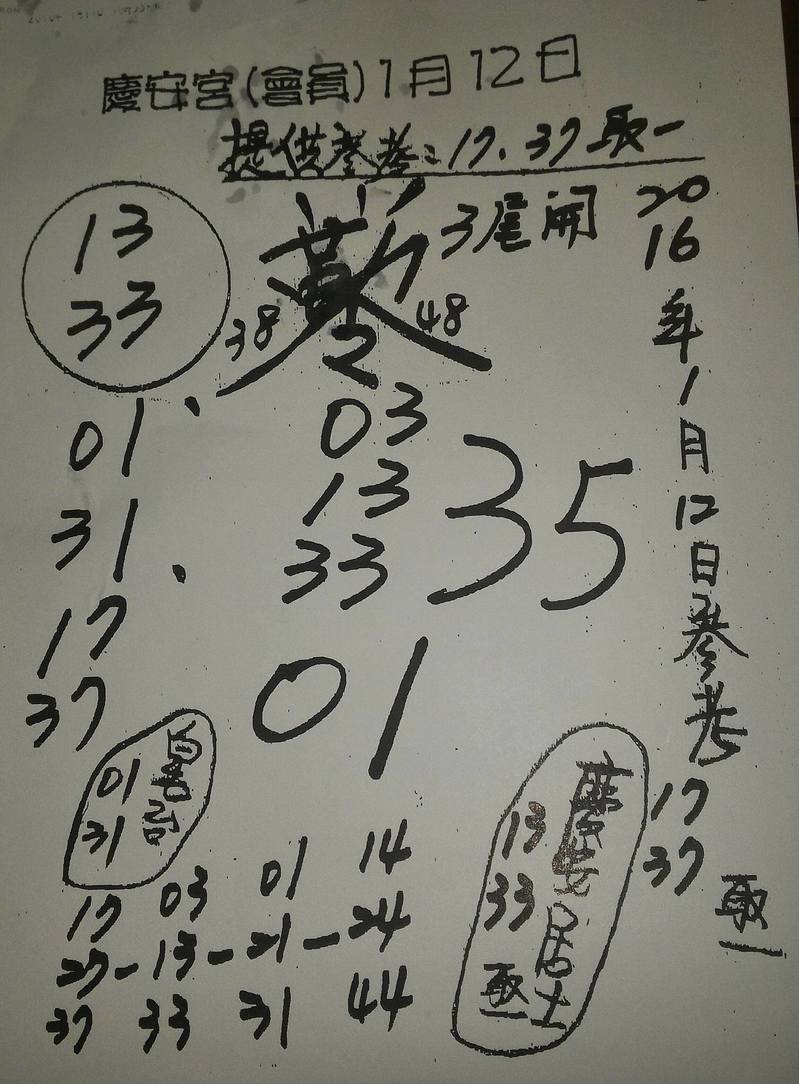 慶安宮(會員)1月12日
提供參考:17.37取一
13
33
3尾開
38
48
2016年1月12日參考
17
37
取一
01、
31、
17
37
03
13
33
35
01
01
31
慶安居士
13
33
取一
17 03 01 14
27-13-21-24
37 33 31 44